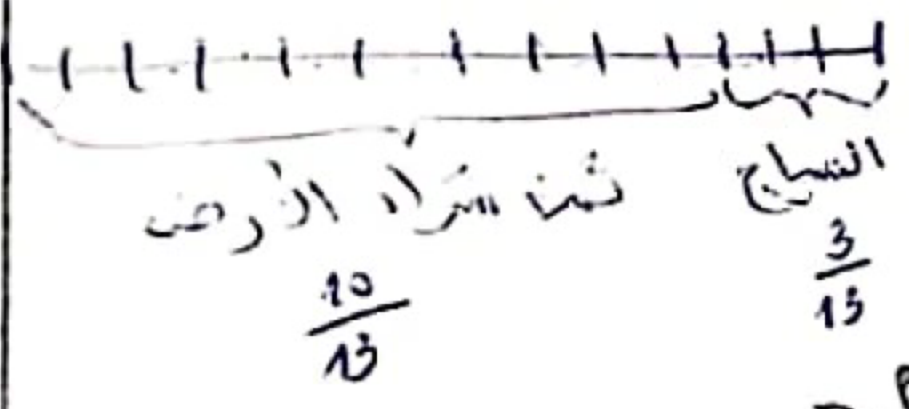 ثمن شراء الأرض
السياج
10/13
3/13